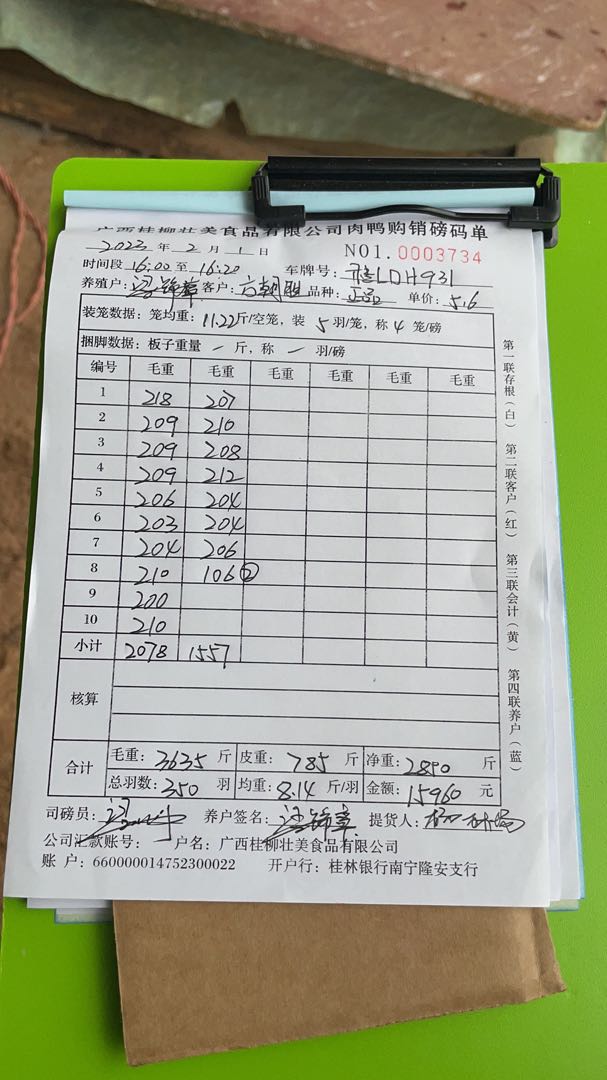 广西桂柳壮美食品有限公司肉鸭购销磅码单
2023年2月1日 NO1.0003734
时间段16:00至16:20 车牌号: LDH931
养殖户: 客户: 品种: 单价:5.6
装笼数据: 笼均重: 11.22斤/空笼, 装5羽/笼, 称4笼/磅
捆脚数据: 板子重量 一 斤, 称 一 羽/磅
编号 毛重 毛重 毛重 毛重 毛重 毛重
1 218 207
2 209 210
3 209 208
4 209 212
5 206 204
6 203 204
7 204 206
8 210 106②
9 200
10 210
小计 2078 1557
核算
合计 毛重: 3635斤 皮重: 785斤 净重: 2850斤
总羽数: 350羽 均重: 8.14斤/羽 金额: 15960元
司磅员: 养户签名: 提货人:
公司汇款账号: 户名: 广西桂柳壮美食品有限公司
账 户: 660000014752300022 开户行: 桂林银行南宁隆安支行
第一联存根(白) 第二联客户(红) 第三联会计(黄) 第四联养户(蓝)